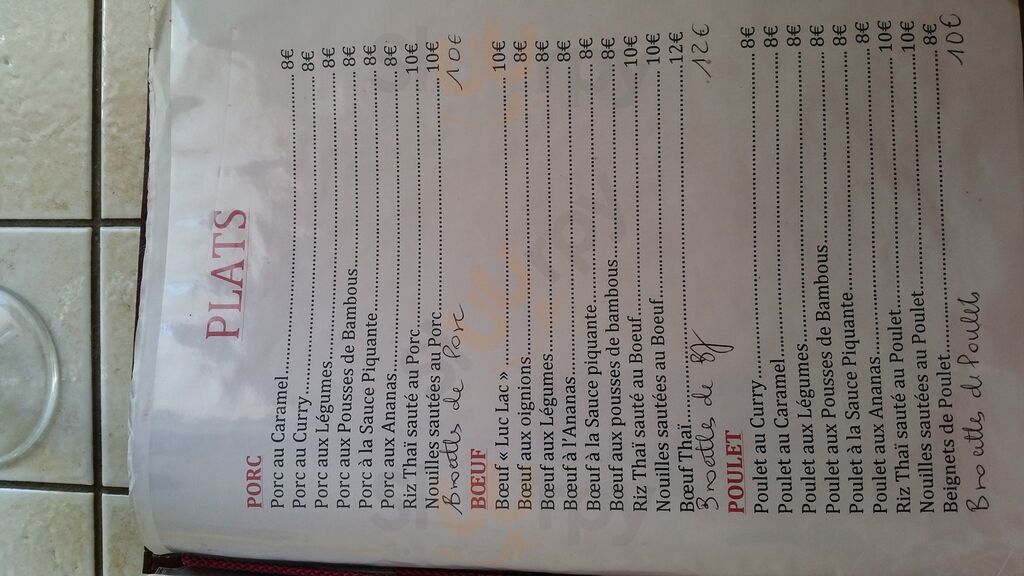 PLATS
PORC
Porc au Caramel....................8€
Porc au Curry....................8€
Porc aux Légumes....................8€
Porc aux Pousses de Bambous....................8€
Porc à la Sauce Piquante....................8€
Porc aux Ananas....................8€
Riz Thaï sauté au Porc....................10€
Nouilles sautées au Porc....................10€
Brochettes de Porc 10€
BŒUF
Bœuf « Luc Lac »....................10€
Bœuf aux oignions....................8€
Bœuf aux Légumes....................8€
Bœuf à l'Ananas....................8€
Bœuf à la Sauce piquante....................8€
Bœuf aux pousses de bambous....................8€
Riz Thaï sauté au Boeuf....................10€
Nouilles sautées au Boeuf....................10€
Bœuf Thaï....................12€
Brochettes de Bf 12€
POULET
Poulet au Curry....................8€
Poulet au Caramel....................8€
Poulet aux Légumes....................8€
Poulet aux Pousses de Bambous....................8€
Poulet à la Sauce Piquante....................8€
Poulet aux Ananas....................8€
Riz Thaï sauté au Poulet....................10€
Nouilles sautées au Poulet....................10€
Beignets de Poulet....................8€
Brochettes de Poulets 10€
sluurpy